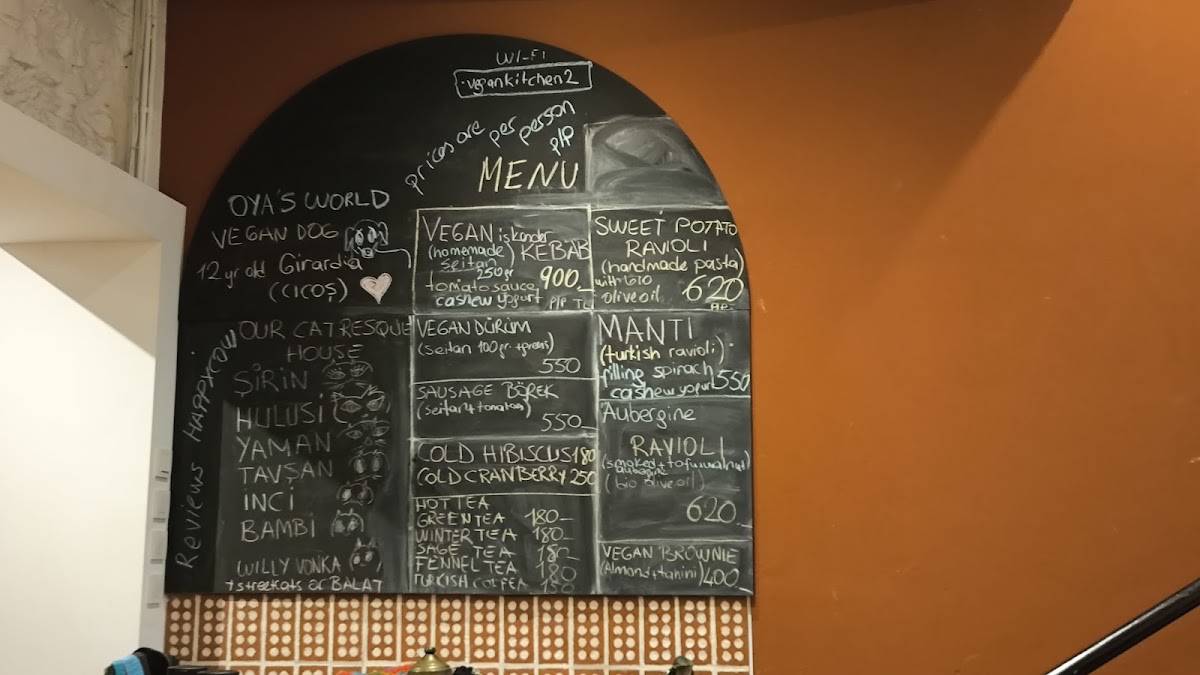 WI-FI
vegankitchen2
prices are per person
P/P
MENU
OYA'S WORLD
VEGAN DOG
12 yr old Girardia
(CICOŞ)
Reviews HAPPYCOW
OUR CAT RESQUE
HOUSE
ŞİRİN
HULUSİ
YAMAN
TAVŞAN
İNCİ
BAMBİ
WILLY VONKA
+ streetcats of BALAT
VEGAN iskender
(homemade) KEBAB
seitan
250gr
tomato sauce 900.-
cashew yogurt P/P TL
VEGAN DÜRÜM
(seitan 100gr
550
SAUSAGE BÖREK
(seitan + tomatoe)
550.-
COLD HIBISCUS 180
COLD CRANBERRY 250
HOT TEA
GREEN TEA 180.-
WINTER TEA 180.-
SAGE TEA 180.-
FENNEL TEA 180
TURKISH COFFEA 150
SWEET POTATO
RAVIOLI
(handmade pasta)
with bio
olive oil 620
MANTI
(turkish ravioli)
filling spinach
cashew yogurt 550
Aubergine
RAVIOLI
(smoked + tofu walnut
aubergine
(bio olive oil)
620.-
VEGAN BROWNIE
(Almond + tahini) 400